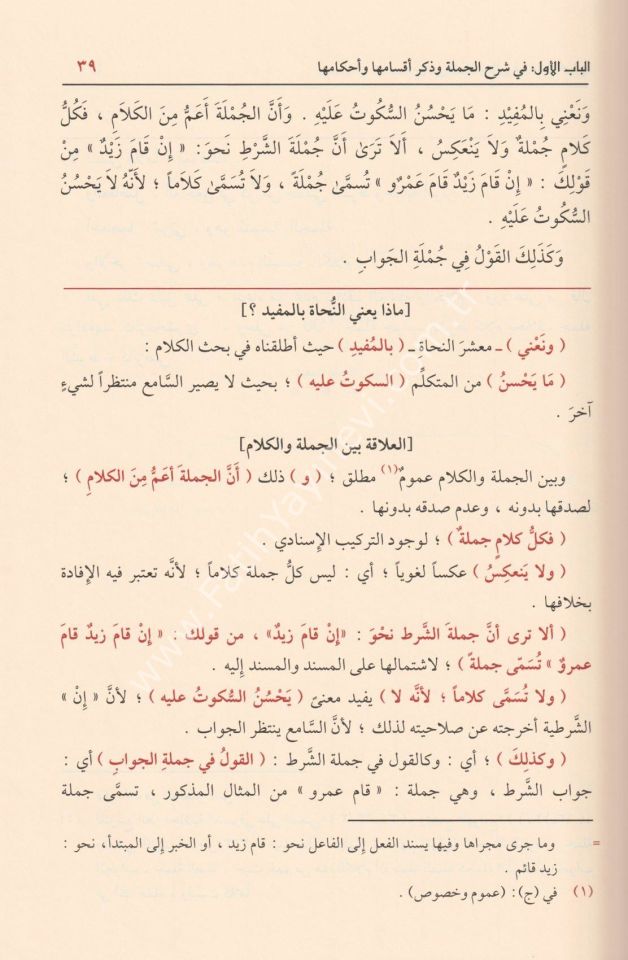 الباب الأول: في شرح الجملة وذكر أقسامها وأحكامها ٣٩
وَنَعْنِي بِالمُفِيْدِ : مَا يَحْسُنُ السُّكُوتُ عَلَيْهِ . وَأَنَّ الجُمْلَةَ أَعَمُّ مِنَ الكَلَامِ ، فَكُلُّ
كَلَامٍ جُمْلَةٌ وَلَا يَنْعَكِسُ ، أَلَا تَرَىٰ أَنَّ جُمْلَةَ الشَّرْطِ نَحوَ: « إِنْ قَامَ زَيْدٌ » مِنْ
قَوْلِكَ : « إِنْ قَامَ زَيْدٌ قَامَ عَمْرٌو » تُسمَّىٰ جُمْلَةً ، وَلَا تُسَمَّىٰ كَلَاماً ؛ لأَنَّهُ لَا يَحْسُنُ
السُّكُوتُ عَلَيْهِ .
وَكَذَلِكَ القَوْلُ فِي جُمْلَةِ الجَوابِ .
[ماذا يعني النُّحاة بالمفيد ؟]
( ونَعْني ) ـ معشرَ النحاةِ ـ ( بالمُفيدِ ) حيث أطلقناه في بحث الكلام :
( مَا يَحْسُنُ ) من المتكلِّم ( السكوتُ عليه ) ؛ بحيث لا يصير السَّامع منتظراً لشيءٍ
آخرَ .
[العلاقة بين الجملة والكلام]
وبين الجملة والكلام عمومٌ(١) مطلق ؛ ( و ) ذلك ( أَنَّ الجملةَ أعَمُّ مِنَ الكلامِ ) ؛
لصدقها بدونه ، وعدم صدقه بدونها .
( فكلُّ كلامٍ جملةٌ ) ؛ لوجود التركيب الإسنادي .
( ولا يَنعكِسُ ) عكساً لغوياً ؛ أي : ليس كلُّ جملة كلاماً ؛ لأنَّه تعتبر فيه الإفادة
بخلافها .
( ألا ترى أنَّ جملةَ الشَّرط نحْوَ : «إنْ قامَ زيدٌ» ، من قولك : « إنْ قامَ زيدٌ قامَ
عمروٌ » تُسَمّى جملةً ) ؛ لاشتمالها على المسند والمسند إليه .
( ولا تُسَمَّى كلاماً ؛ لأنَّه لا ) يفيد معنىً ( يَحْسُنُ السُّكوتُ عليه ) ؛ لأنَّ « إنْ »
الشَّرطية أخرجته عن صلاحيته لذلك ؛ لأنَّ السَّامع ينتظر الجواب .
( وكذلِكَ ) ؛ أي : وكالقول في جملة الشَّرط : ( القولُ في جملةِ الجوابِ ) أي :
جواب الشَّرط ، وهي جملة : « قام عمرو » من المثال المذكور ، تسمَّى جملة
= وما جرى مجراها وفيها يسند الفعل إلى الفاعل نحو : قام زيد ، أو الخبر إلى المبتدأ، نحو :
زيد قائم .
(١) في (ج): (عموم وخصوص) .
www.FatihYayinevi.com.tr